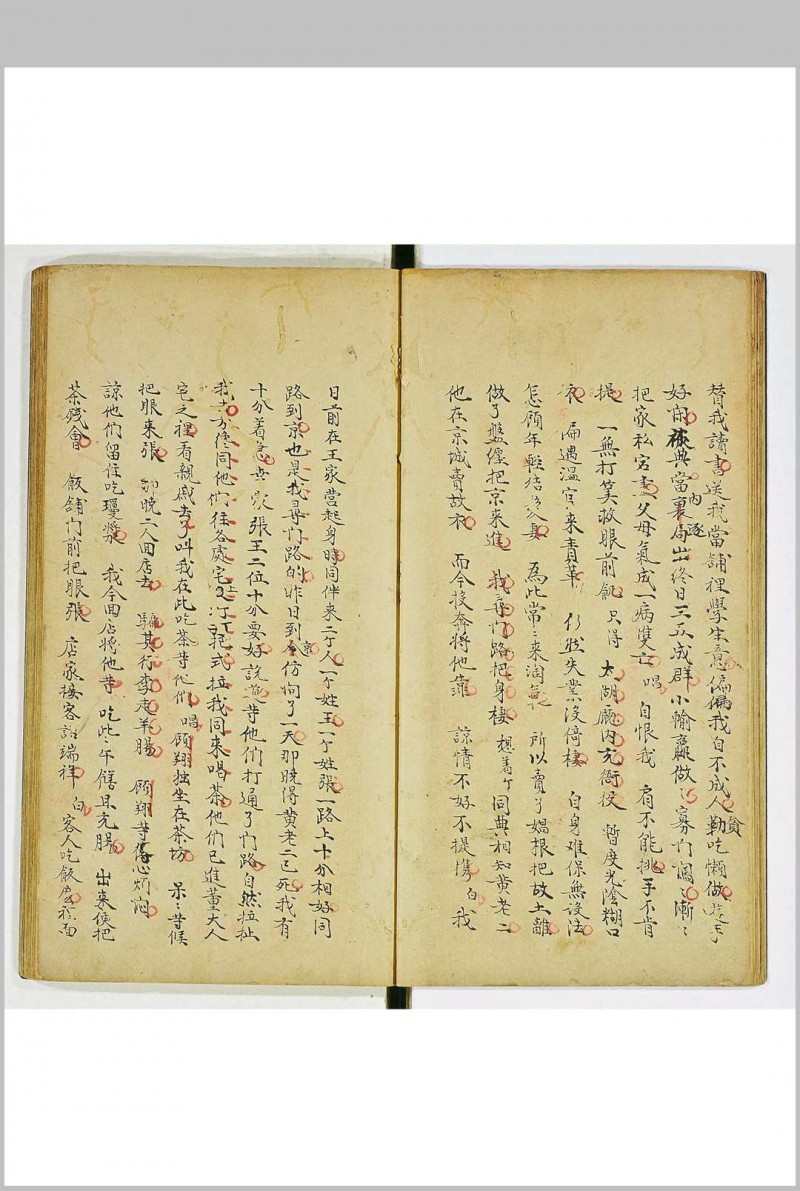 替我讀書送我當舖裡學生意偏偏我自不成人貪吃懶做遊手
好閑被典當裏內逐局出終日三五成群小輸贏做
把家私宕盡父母氣成一病雙亡唱自恨我肩不能挑手不肯
提一無打算救眼前飢只得太湖廳內充衙役暫度光陰糊口
衣偏遇溫官來責革仍然失業沒倚棲自身難保無設法
怎顧年輕結髮妻為此常常來淘氣所以賣了娼根把故土離
做了盤纏把京來進我尋門路把身棲想着个同典相知黃老二
他在京城賣故衣而今投奔將他靠諒情不好不提携白我
日前在王家營起身時同伴來二个人一个姓王一个姓張一路上十分相好同
路到京也是我尋門路的昨日到京仿问了一天那曉得黃老二已死我有
十分着急張王二位十分要好說道等他們打通了門路自然拉扯
我同他們往各處宅拉我同來喝茶他們已進董大人
宅之裡看親戚去了叫我在此吃茶等他們唱顧翔独坐在茶坊呆呆等候
把眼來張那曉二人回店去騙其行李走羊腸顧翔等得心煩悶
諒他們留住吃瓊漿我今回店將他等吃些午饍且充腸出來便把
茶殘會飯舖門前把眼張店家接客話端祥白客人吃飯